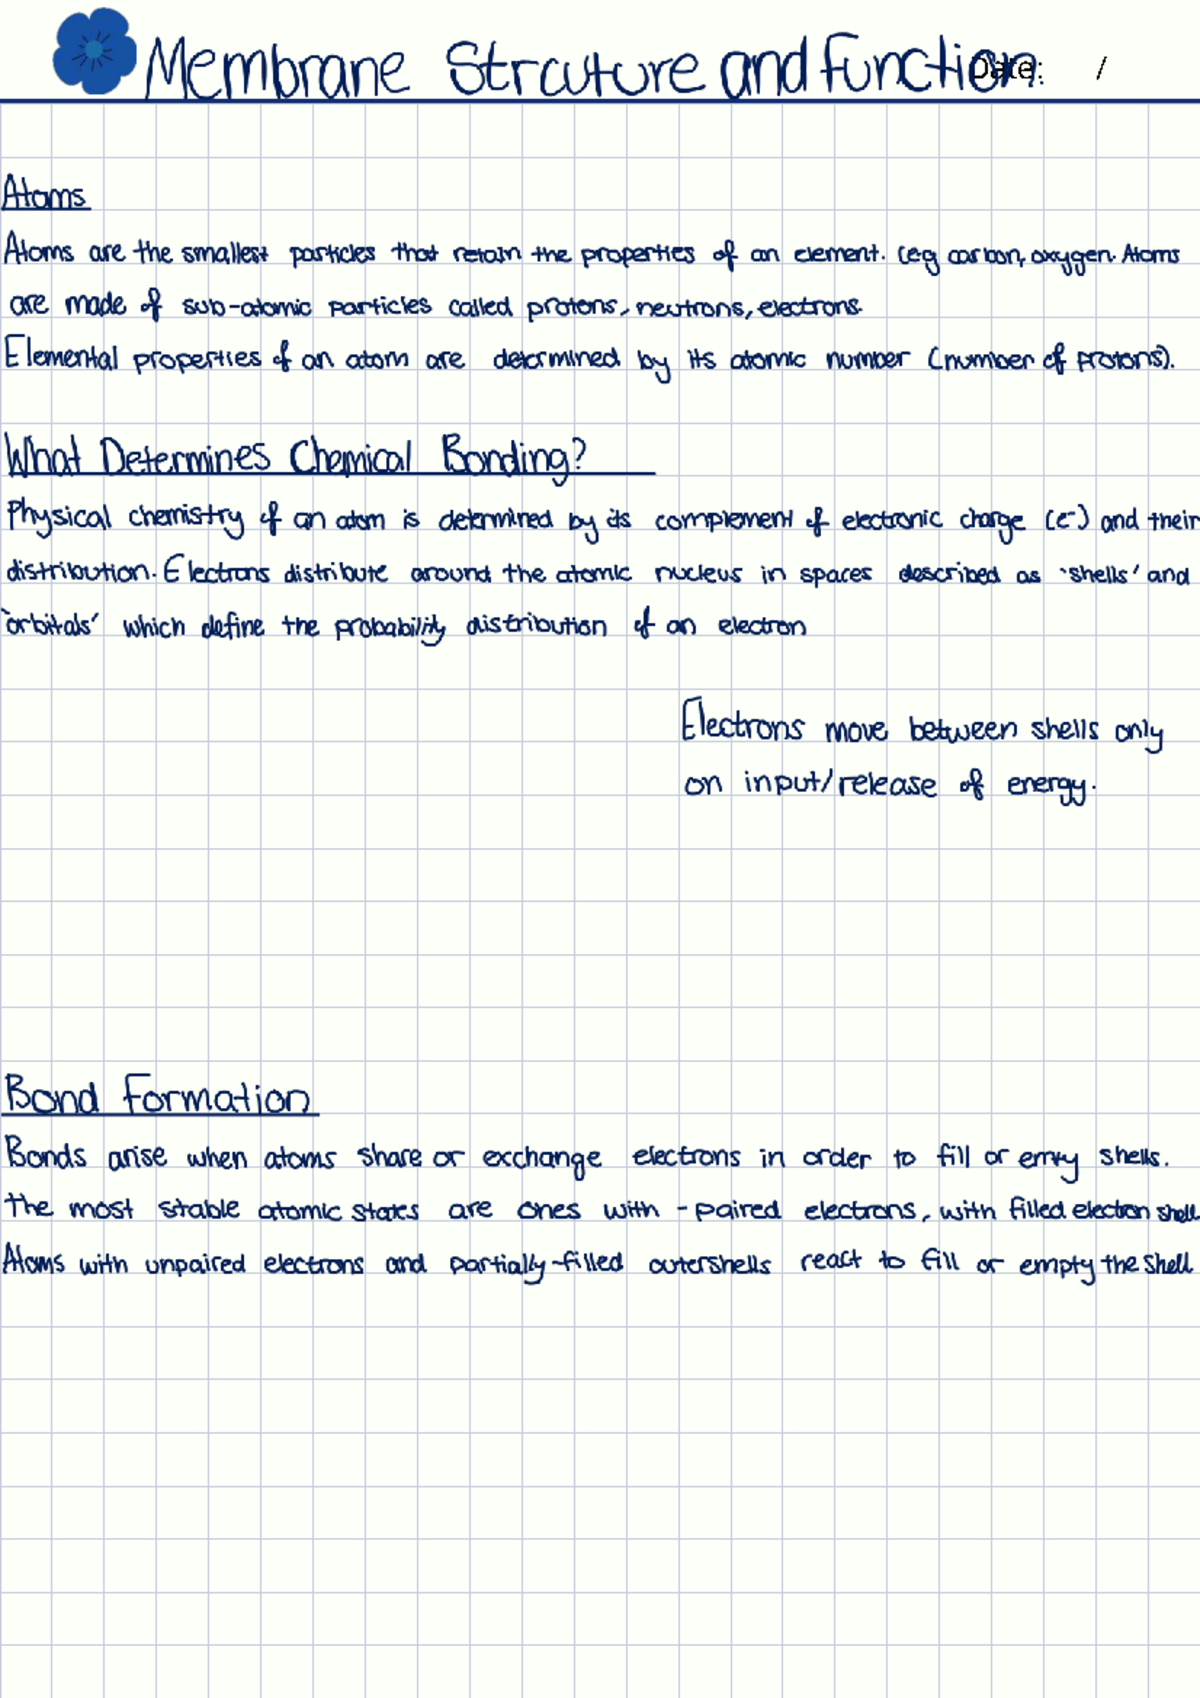 Membrane Strcuture and function
Date: /
Atoms
Atoms are the smallest particles that retain the properties of an element. (eg carbon, oxygen. Atoms
are made of sub-atomic particles called protons, neutrons, electrons.
Elemental properties of an atom are determined by its atomic number (number of protons).
What Determines Chemical Bonding?
Physical chemistry of an atom is determined by its complement of electronic charge (e-) and their
distribution. Electrons distribute around the atomic nucleus in spaces described as 'shells' and
'orbitals' which define the probability distribution of an electron
Electrons move between shells only
on input/release of energy.
Bond Formation
Bonds arise when atoms share or exchange electrons in order to fill or emty shells.
The most stable atomic states are ones with - paired electrons, with filled electron shell
Atoms with unpaired electrons and partially-filled outershells react to fill or empty the shell